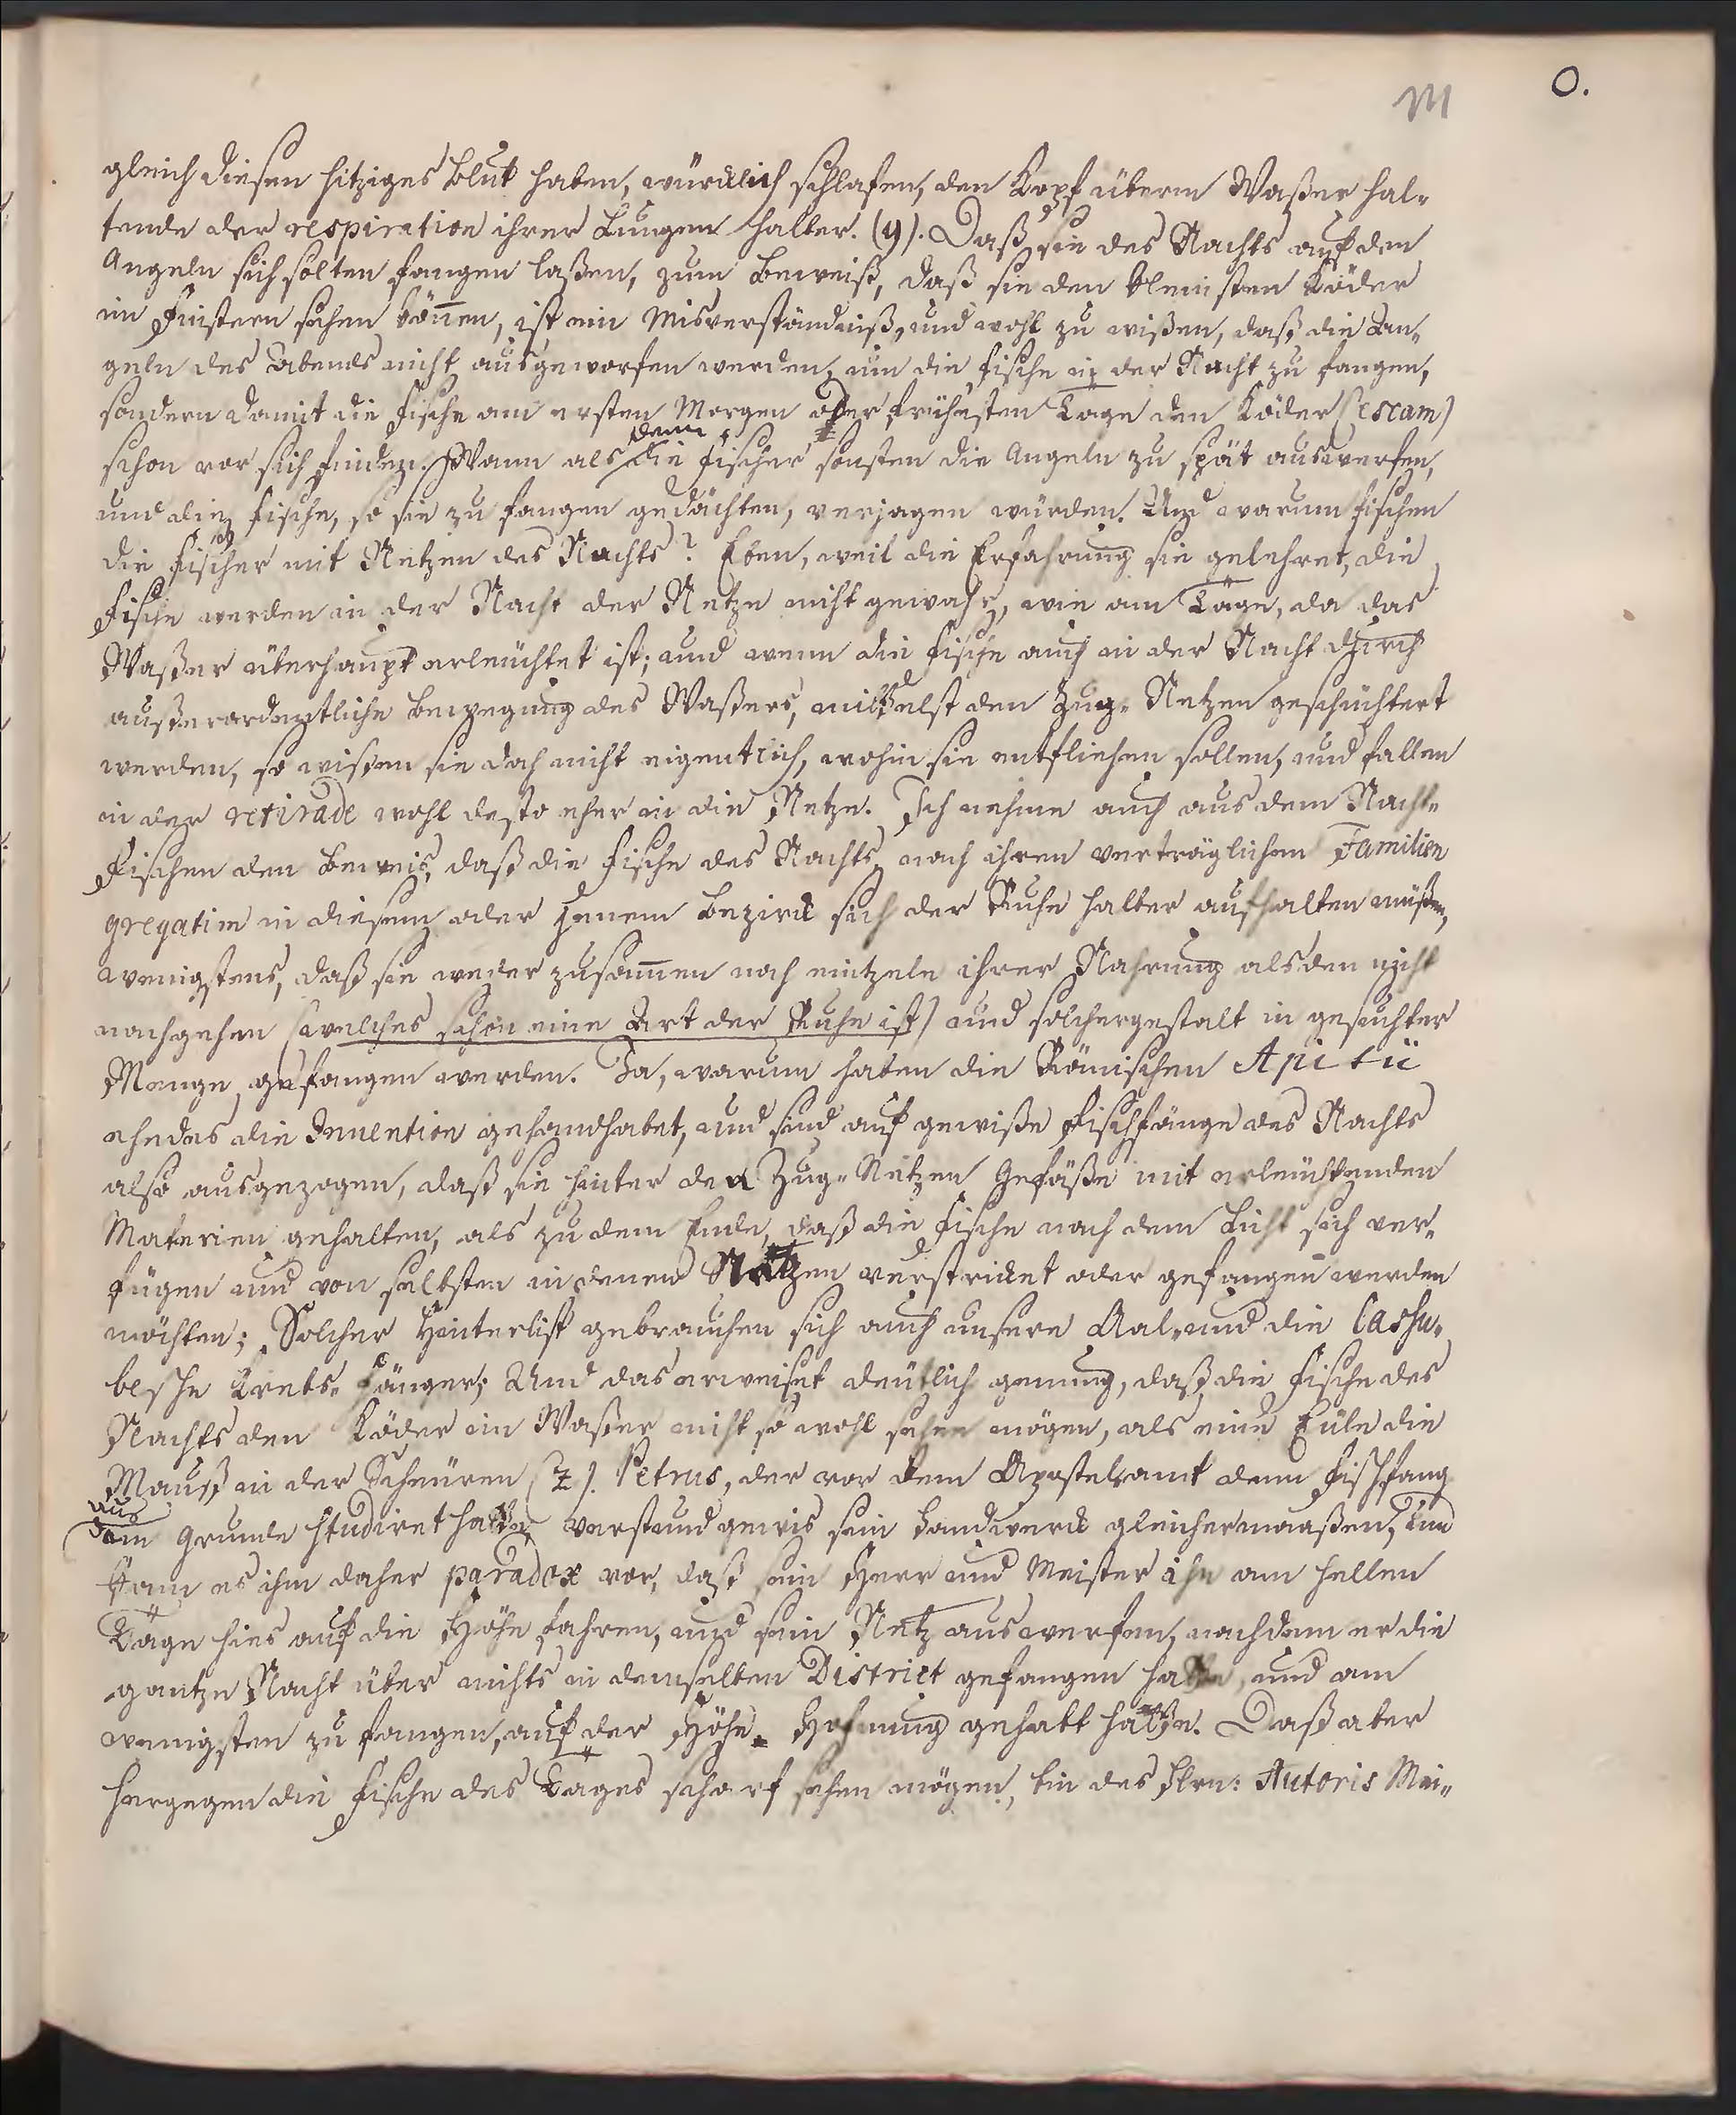 M
O.
gleich diesen hitziges Blut haben, würcklich schlafen, den Kopf überm Waßer hal-
tende der respiration ihrer Lungen halber. (y). Daß sie des Nachts auf den
Angeln sich solten fangen laßen, zum Beweiß, daß sie den kleinsten Köder
im Finstern sehen können, ist ein Misverständniß, und wohl zu wißen, daß die An-
geln des Abends nicht ausgeworfen werden, um die Fische in der Nacht zu fangen,
sondern damit die Fische am ersten Morgen oder frühesten Tage den Köder (escam)
schon vor sich finden. Wann als denn die Fischer sonsten die Angeln zu spät auswerfen,
und die Fische, so sie zu fangen gedächten, verjagen würden. Und warum fischen
die Fischer mit Netzen des Nachts? Eben, weil die Erfahrung sie gelehret, die
Fische werden in der Nacht der Netze nicht gewahr, wie am Tage, da das
Waßer überhaupt erleuchtet ist; und wenn die Fische auch in der Nacht durch
außerordentliche Bewegung des Waßers, mittelst den Zug-Netzen geschüchtert
werden, so wißen sie doch nicht eigentlich, wohin sie entfliehen sollen, und fallen
in der retirade wohl desto eher in die Netze. Ich nehme auch aus dem Nacht-
Fischen den Beweis, daß die Fische des Nachts nach ihren verträglichen Familien
gregatim in diesem oder jenem Bezirck sich der Ruhe halber aufhalten müßen,
wenigstens, daß sie weder zusammen noch eintzeln ihrer Nahrung alsden nicht
nachgehen (welches schon eine Art der Ruhe ist) und solchergestalt in gesuchter
Menge gefangen werden. Ja, warum haben die Römischen Apitii
ehedes die Invention gehandhabet, und sind auf gewiße Fischfänge des Nachts
also ausgezogen, daß sie hinter den Zug-Netzen Gefäße mit erleuchtenden
Materien gehalten, als zu dem Ende, daß die Fische nach dem Licht sich ver-
fügen und von selbsten in denen Netzen verstricket oder gefangen werden
möchten; Solcher Hinterlist gebrauchen sich auch unsere Aal- und die Cashu-
besche Krebs-Fänger; Und das erweiset deutlich genung, daß die Fische des
Nachts den Köder im Waßer nicht so wohl sehen mögen, als eine Eule die
Mauß in der Scheuren (z). Petrus, der vor dem Apostelamt denn Fischfang
aus dem Grunde studiret hatte, verstund gewis sein Handwerck gleichermaaßen, und
kam es ihm daher paradox vor, daß sein Herr und Meister ihn am hellen
Tage hies auf die Höhe fahren, und sein Netz auswerfen, nachdem er die
gantze Nacht über nichts in demselben District gefangen hatte, und am
wenigsten zu fangen, auf der Höhe Hofnung gehabt hatte. Daß aber
hergegen die Fische des Tages scharf sehen mögen, bin des Hrn: Autoris Mei-